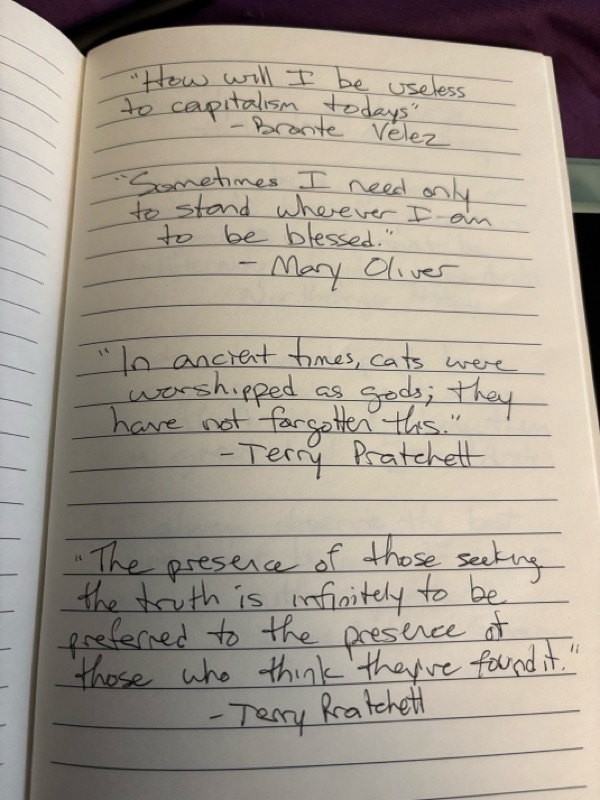 "How will I be useless
to capitalism todays"
- Bronte Velez
"Sometimes I need only
to stand wherever I am
to be blessed."
- Mary Oliver
"In ancient times, cats were
worshipped as gods; they
have not forgotten this."
- Terry Pratchett
"The presence of those seeking
the truth is infinitely to be
preferred to the presence of
those who think they've found it."
- Terry Pratchett